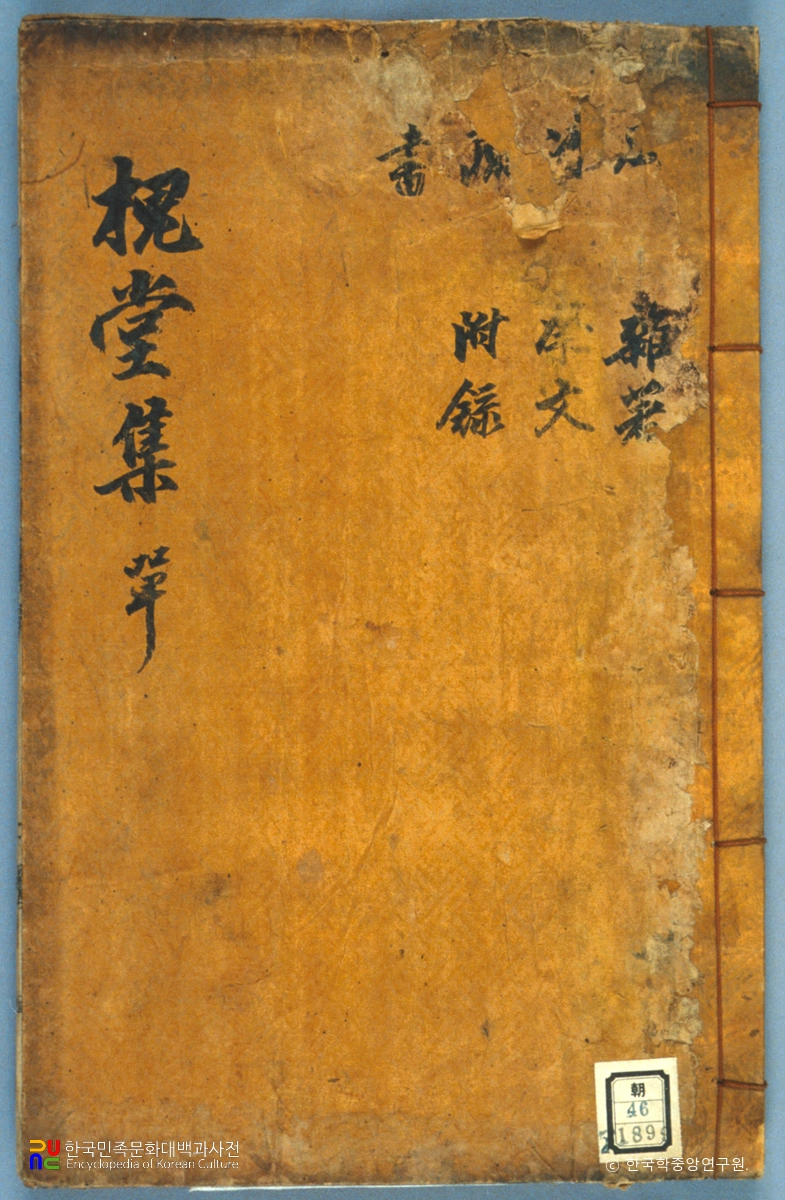 槐堂集 單
書
雜著
祭文
附錄
朝
46
189
한국민족문화대백과사전
Encyclopedia of Korean Culture
© 한국학중앙연구원.